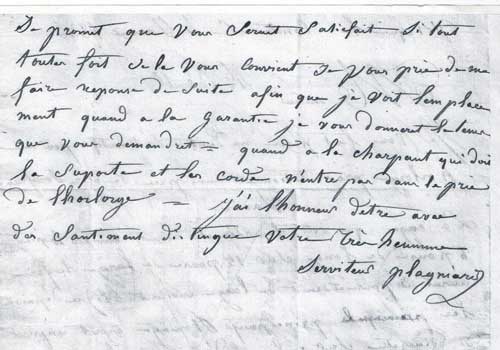 Je promet que vous seruet satisfait Si tout
toutes fort cela vous convient je vous prie de me
faire reponse de suite afin que je voit lemplace
ment quand a la garantie je vous donneret
que vous demandret = quand a la charpant qui doit
la suporte et les corde n'entre pas dans le prix
de lhorloge = j'ai lhonneur detre avec
des santiment distinque votre très heumme
Serviteur plagniard